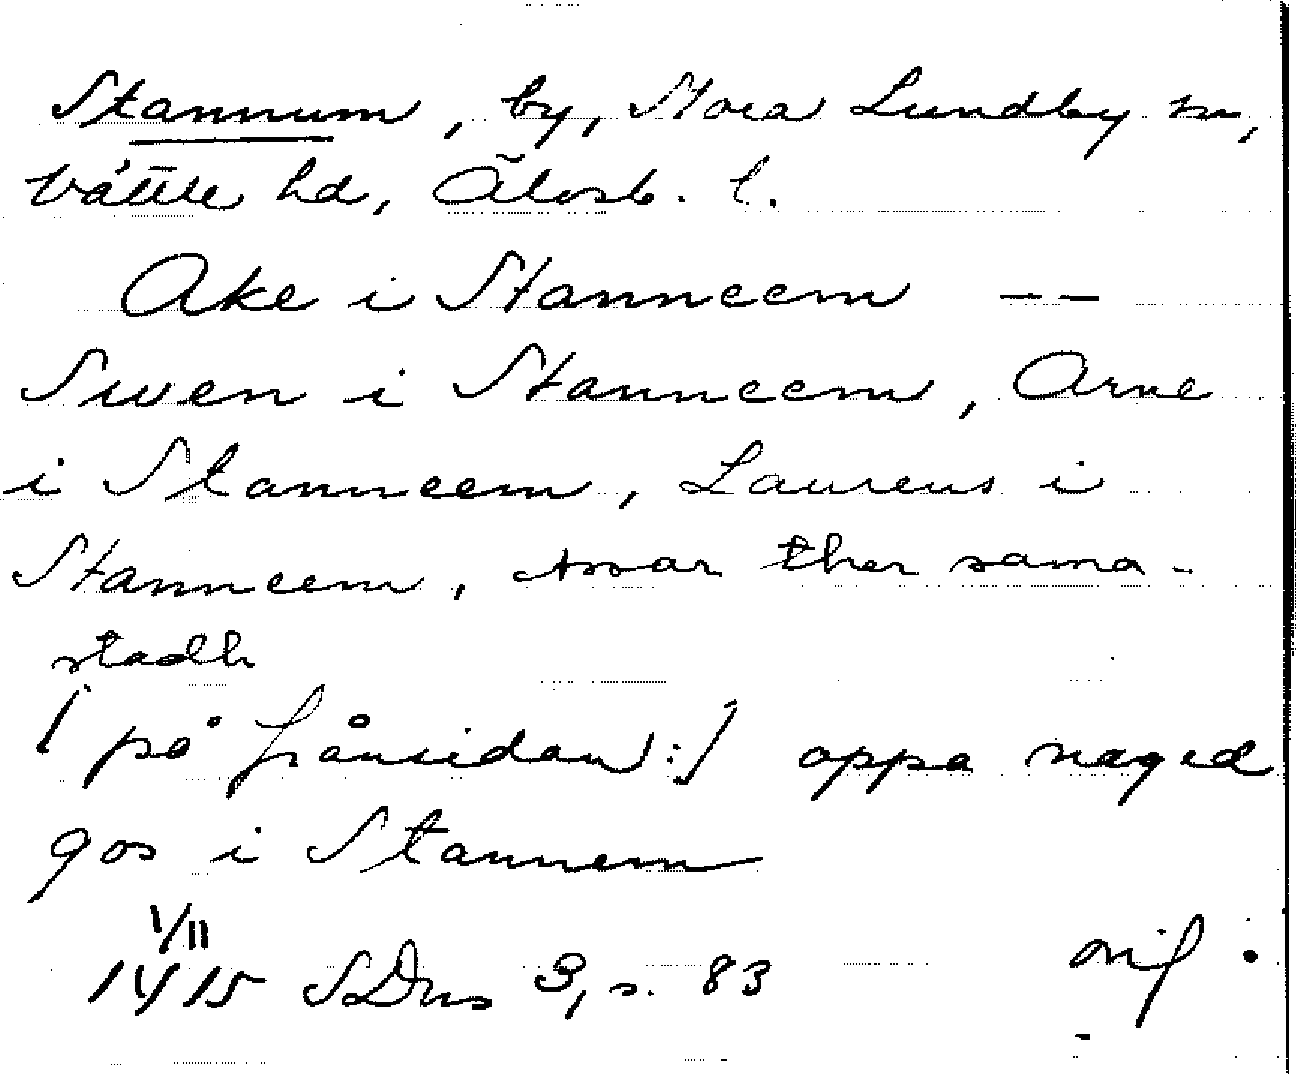 Stannum, by, Stora Lundby sn,
Vättle hd, Älvsb. l.
Ake i Stanneem --
Swen i Stanneem, Arne
i Stanneem, Laurens i
Stanneem, ther sama-
stadh
[på frånsidan:] oppa naged
gos i Stannem
1/11
1415 SDns 3, s. 83 orig.